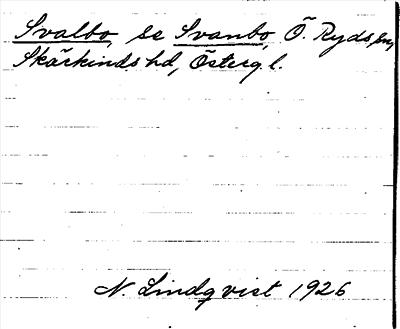 Svalbo, se Svanbo, Ö. Ryds sn,
Skärkinds hd, Österg.l.
N. Lindqvist 1926